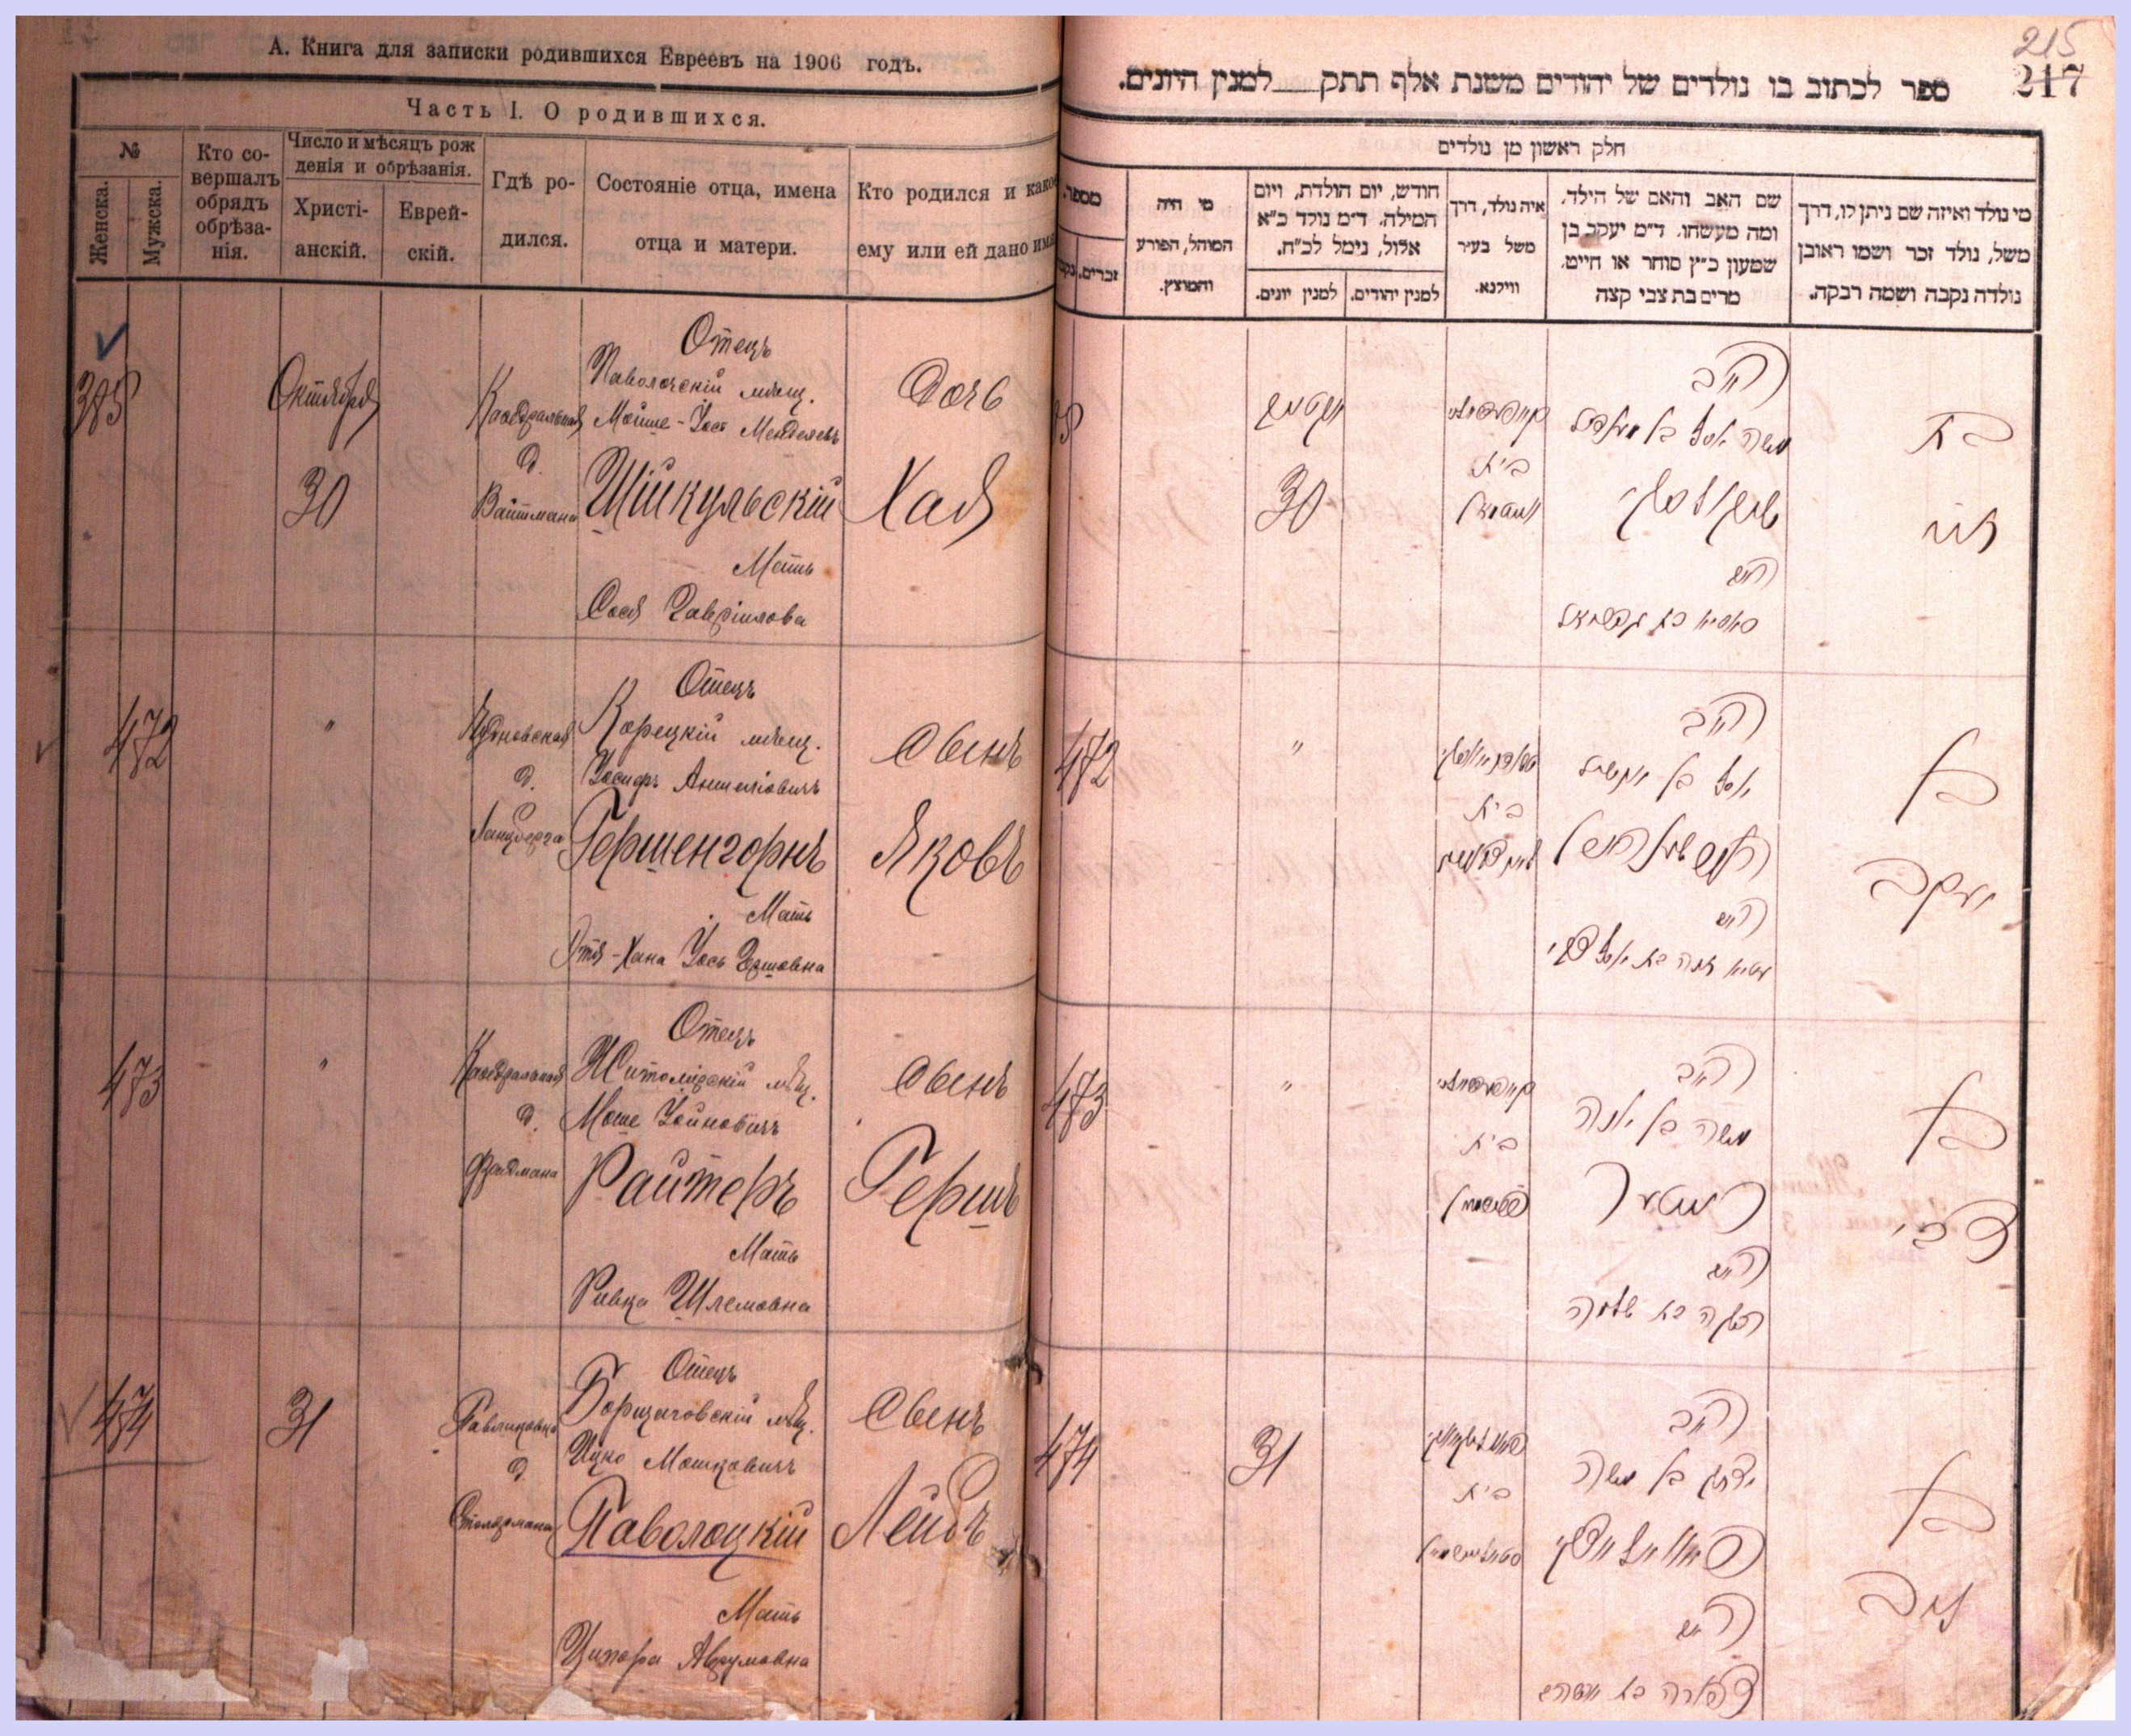 А. Книга для записки родившихся Евреевъ на 1906 годъ.
Часть I. О родившихся.
№
Женска.
Мужска.
Кто со-
вершалъ
обрядъ
обрѣза-
нія.
Число и мѣсяцъ рож
денія и обрѣзанія.
Христі-
анскій.
Еврей-
скій.
Гдѣ ро-
дился.
Состояніе отца, имена
отца и матери.
Кто родился и како
ему или ей дано имя
385
Октября
30
Каѳедральная
д.
Вайтмана
Отецъ
Паволочскій мѣщ.
Мойше-Іось Менделевъ
Шійкульскій
Мать
Сося Гавріилова
Дочь
Хая
472
"
Чудновская
д.
Ланцберга
Отецъ
Корецкій мѣщ.
Іосифъ Аншелiовичъ
Гершенгорнъ
Мать
Этя-Хана Іось Гершовна
Сынъ
Яковъ
473
"
Каѳедральная
д.
Фридмана
Отецъ
Житомірскій мѣщ.
Моше Іойновичъ
Райтеръ
Мать
Ривка Шлемовна
Сынъ
Гершъ
474
31
д.
Столярмана
Отецъ
Борщаговскій мѣщ.
Ицко Мошковичъ
Паволоцкій
Мать
Ципора Аврумовна
Сынъ
Лейбъ
215
217
ספר לכתוב בו נולדים של יהודים משנת אלף תתק למנין היונים.
חלק ראשון מן נולדים
מספר.
זכרים.
נקב
מי היה
המוהל, הפורע
והמוצץ.
חודש, יום הולדת, ויום
המילה. ד״מ נולד כ״א
אלול, נימל לכ״ח.
למנין יונים.
למנין יהודים.
איה נולד, דרך
משל בעיר
ווילנא.
שם האב והאם של הילד,
ומה מעשהו. ד״מ יעקב בן
שמעון כ״ץ סוחר או חייט.
מרים בת צבי קצה
מי נולד ואיזה שם ניתן לו, דרך
משל, נולד זכר ושמו ראובן
נולדה נקבה ושמה רבקה.
30
בית
האב
משה יוסף בן מענדיל
האם
סאסיא בת גבריאל
בת
חיה
472
"
בית
האב
יוסף בן אנשיל
הערשענהארן
האם
עטיא חנה בת יוסף צבי
בן
יעקב
473
"
בית
פרידמאן
האב
משה בן יונה
רייטער
האם
רבקה בת שלמה
בן
צבי
474
31
בית
האב
יצחק בן משה
פאוואלאצקי
האם
צפורה בת אברהם
בן
ליב